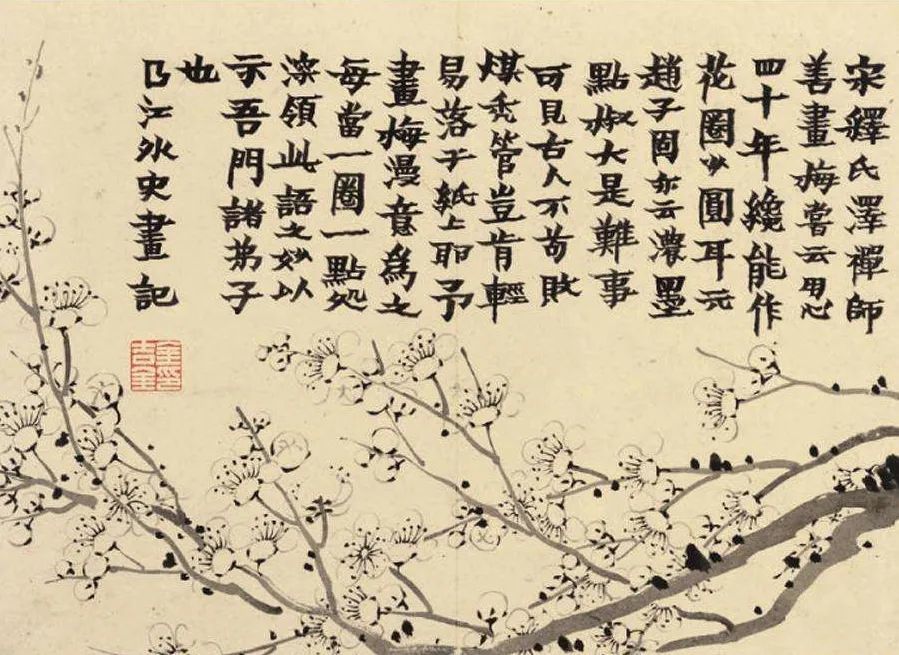 宋釋氏澤禪師
善畫梅嘗云用心
四十年纔能作
花圈少圓耳元
趙子固亦云濃墨
點椒大是難事
可見古人不苟敗
煤禿管豈肯輕
易落于紙上耶予
畫梅漫意爲之
每當一圈一點処
深領此語之妙以
示吾門諸弟子
也
曲江外史畫記
金吉金印